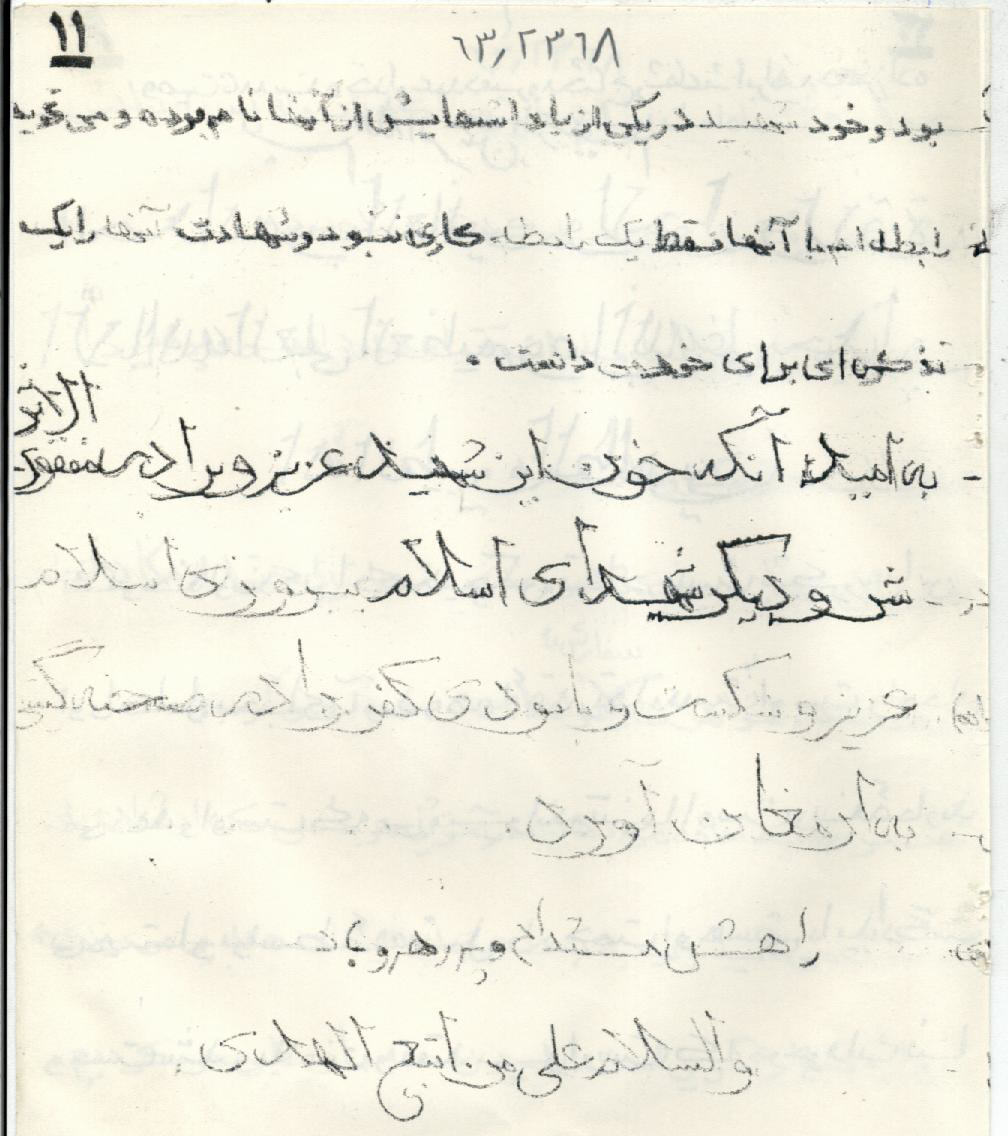 ۱۱
۶۳٫۲۳۶۸
بود و خود شهید در یکی از یادداشتهایش از آنها نام برده و می گوید
رابطه ام با آنها فقط یک رابطه کاری نبود و شهادت آنها را یک
تذکره ای برای خود می دانست .
- به امید آنکه خون این شهید عزیز و برادر مفقود الاثر
ش و دیگر شهدای اسلام پیروزی اسلام
عزیز و شکست و نابودی کفر را در صحنه گیتی
به ارمغان آورد
راهش مستدام و پر رهرو باد
والسلام علی من اتبع الهدی